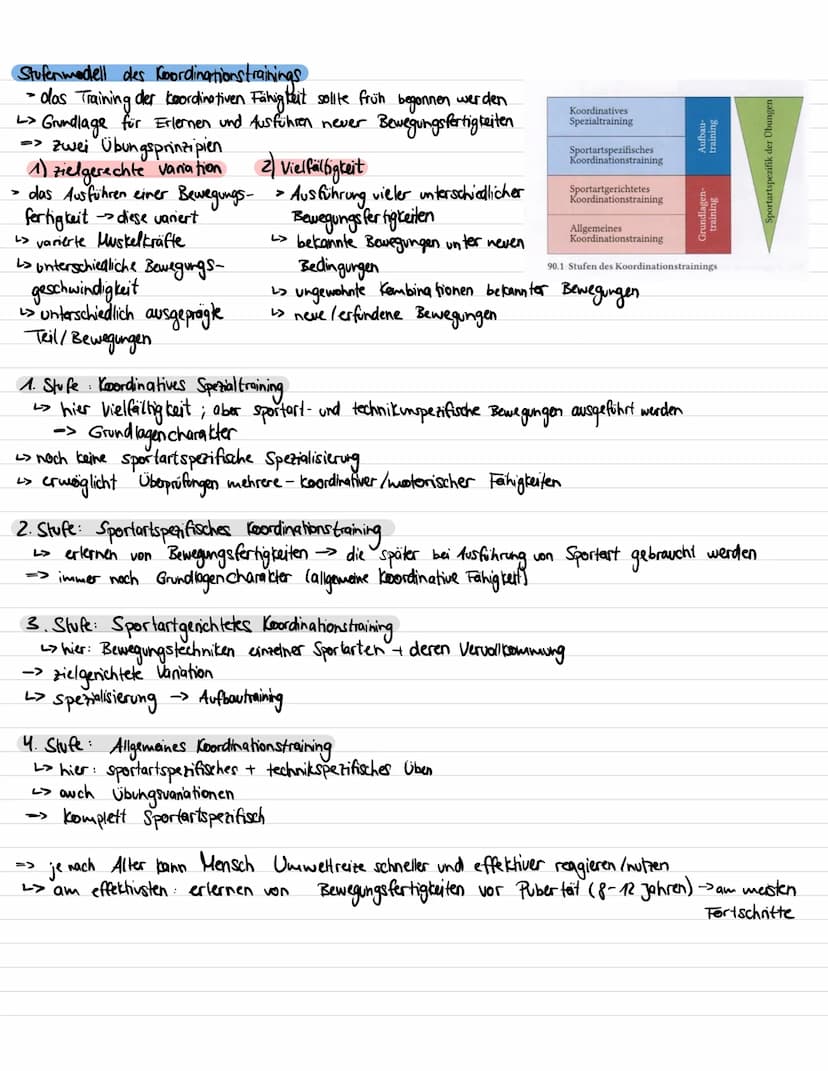 Stufenmodell des Koordinationstrainings
> das Training der koordinativen Fähigkeit sollte früh begonnen werden
↳ Grundlage für Erlernen und Ausführen neuer Bewegungsfertigkeiten
=> zwei Übungsprinzipien
1) zielgerechte Variation
> das Ausführen einer Bewegungs-
fertigkeit -> diese variert
↳ varierte Muskelkräfte
↳ unterschiedliche Bewegungs-
geschwindigkeit
↳ unterschiedlich ausgeprägte
Teil/Bewegungen
2) Vielfältigkeit
> Ausführung vieler unterschiedlicher
Bewegungsfertigkeiten
↳ bekannte Bewegungen unter neuen
Bedingungen
↳ ungewohnte Kombinationen bekannter Bewegungen
↳ neue/erfundene Bewegungen
Koordinatives
Spezialtraining
Sportartspezifisches
Koordinationstraining
Sportartgerichtetes
Koordinationstraining
Allgemeines
Koordinationstraining
Aufbau-
training
Grundlagen-
training
Sportartspezifik der Übungen
90.1 Stufen des Koordinationstrainings
1. Stufe: Koordinatives Spezialtraining
↳ hier Vielfältigkeit; aber sportart- und technikunspezifische Bewegungen ausgeführt werden
=> Grundlagencharakter
↳ noch keine sportartspezifische Spezialisierung
↳ ermöglicht Überprüfungen mehrere - koordinativer/motorischer Fähigkeiten
2. Stufe: Sportartspezifisches Koordinationstraining
↳ erlernen von Bewegungsfertigkeiten -> die später bei Ausführung von Sportart gebraucht werden
=> immer noch Grundlagencharakter (allgemeine koordinative Fähigkeit)
3. Stufe: Sportartgerichtetes Koordinationstraining
↳ hier: Bewegungstechniken einzelner Sportarten + deren Vervollkommnung
-> zielgerichtete Variation
↳ spezialisierung -> Aufbautraining
4. Stufe: Allgemeines Koordinationstraining
↳ hier: sportartspezifisches + technikspezifisches Üben
↳ auch Übungsvariationen
=> komplett Sportartspezifisch
=> je nach Alter kann Mensch Umweltreize schneller und effektiver reagieren/nutzen
↳ am effektivsten: erlernen von Bewegungsfertigkeiten vor Pubertät (8-12 Jahren) -> am meisten
Fortschritte